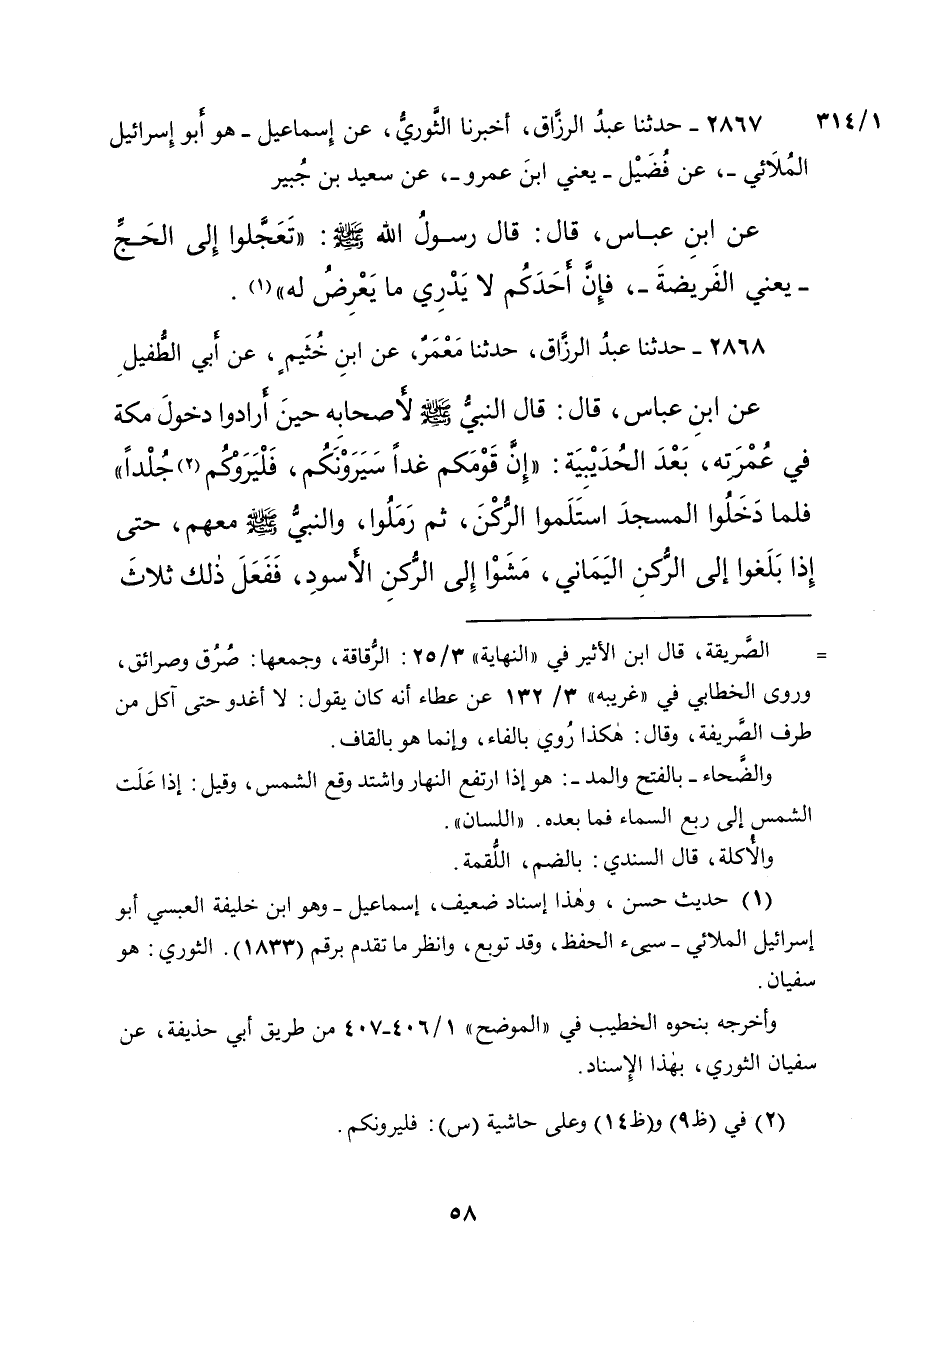 ٣١٤/١ ٢٨٦٧ ـ حدثنا عبدُ الرزَّاق، أخبرنا الثَّوريُّ، عن إسماعيل ـ هو أَبو إسرائيل
المُلَائي ـ، عن فُضَيْل ـ يعني ابنَ عمرو ـ، عن سعيد بن جُبير
عن ابنِ عبـاس، قال: قال رسـولُ الله ﷺ: «تَعَجَّلوا إلى الحَـجِّ
ـ يعني الفَريضةَ ـ، فإِنَّ أَحَدَكُم لا يَدْرِي ما يَعْرِضُ له»(١) .
٢٨٦٨ ـ حدثنا عبدُ الرزَّاق، حدثنا مَعْمَرٌ، عن ابنِ خُثَيمٍ، عن أَبي الطُّفيلِ
عن ابنِ عباس، قال: قال النبيُّ ﷺ لأَصحابِه حينَ أَرادوا دخولَ مكة
في عُمْرَتِه، بَعْدَ الحُدَيْبِيَة: «إِنَّ قَوْمَكم غداً سَيَرَوْنَكُم، فَلْيَرَوْكُم(٢) جُلْداً»
فلما دَخَلُوا المسجدَ استَلَموا الرُّكْنَ، ثم رَمَلُوا، والنبيُّ ﷺ معهم، حتى
إِذا بَلَغوا إلى الرُّكنِ اليَمَاني، مَشَوْا إلى الرُّكنِ الأَسودِ، فَفَعَلَ ذٰلك ثلاثَ
= الصَّريقة، قال ابن الأثير في «النهاية» ٢٥/٣: الرُّقاقة، وجمعها: صُرُق وصرائق،
وروى الخطابي في «غريبه» ٣/ ١٣٢ عن عطاء أنه كان يقول: لا أغدو حتى آكل من
طرف الصَّريفة، وقال: هٰكذا رُوي بالفاء، وإنما هو بالقاف.
والضَّحاء ـ بالفتح والمد ـ: هو إذا ارتفع النهار واشتد وقع الشمس، وقيل: إذا عَلَت
الشمس إلى ربع السماء فما بعده. «اللسان».
والأُكلة، قال السندي: بالضم، اللُّقمة.
(١) حديث حسن ، وهٰذا إسناد ضعيف، إسماعيل ـ وهو ابن خليفة العبسي أبو
إسرائيل الملائي ـ سيىء الحفظ، وقد توبع، وانظر ما تقدم برقم (١٨٣٣). الثوري: هو
سفيان.
وأخرجه بنحوه الخطيب في «الموضح» ٤٠٦/١-٤٠٧ من طريق أبي حذيفة، عن
سفيان الثوري، بهٰذا الإسناد.
(٢) في (ظ٩) و(ظ١٤) وعلى حاشية (س): فليرونكم.
٥٨